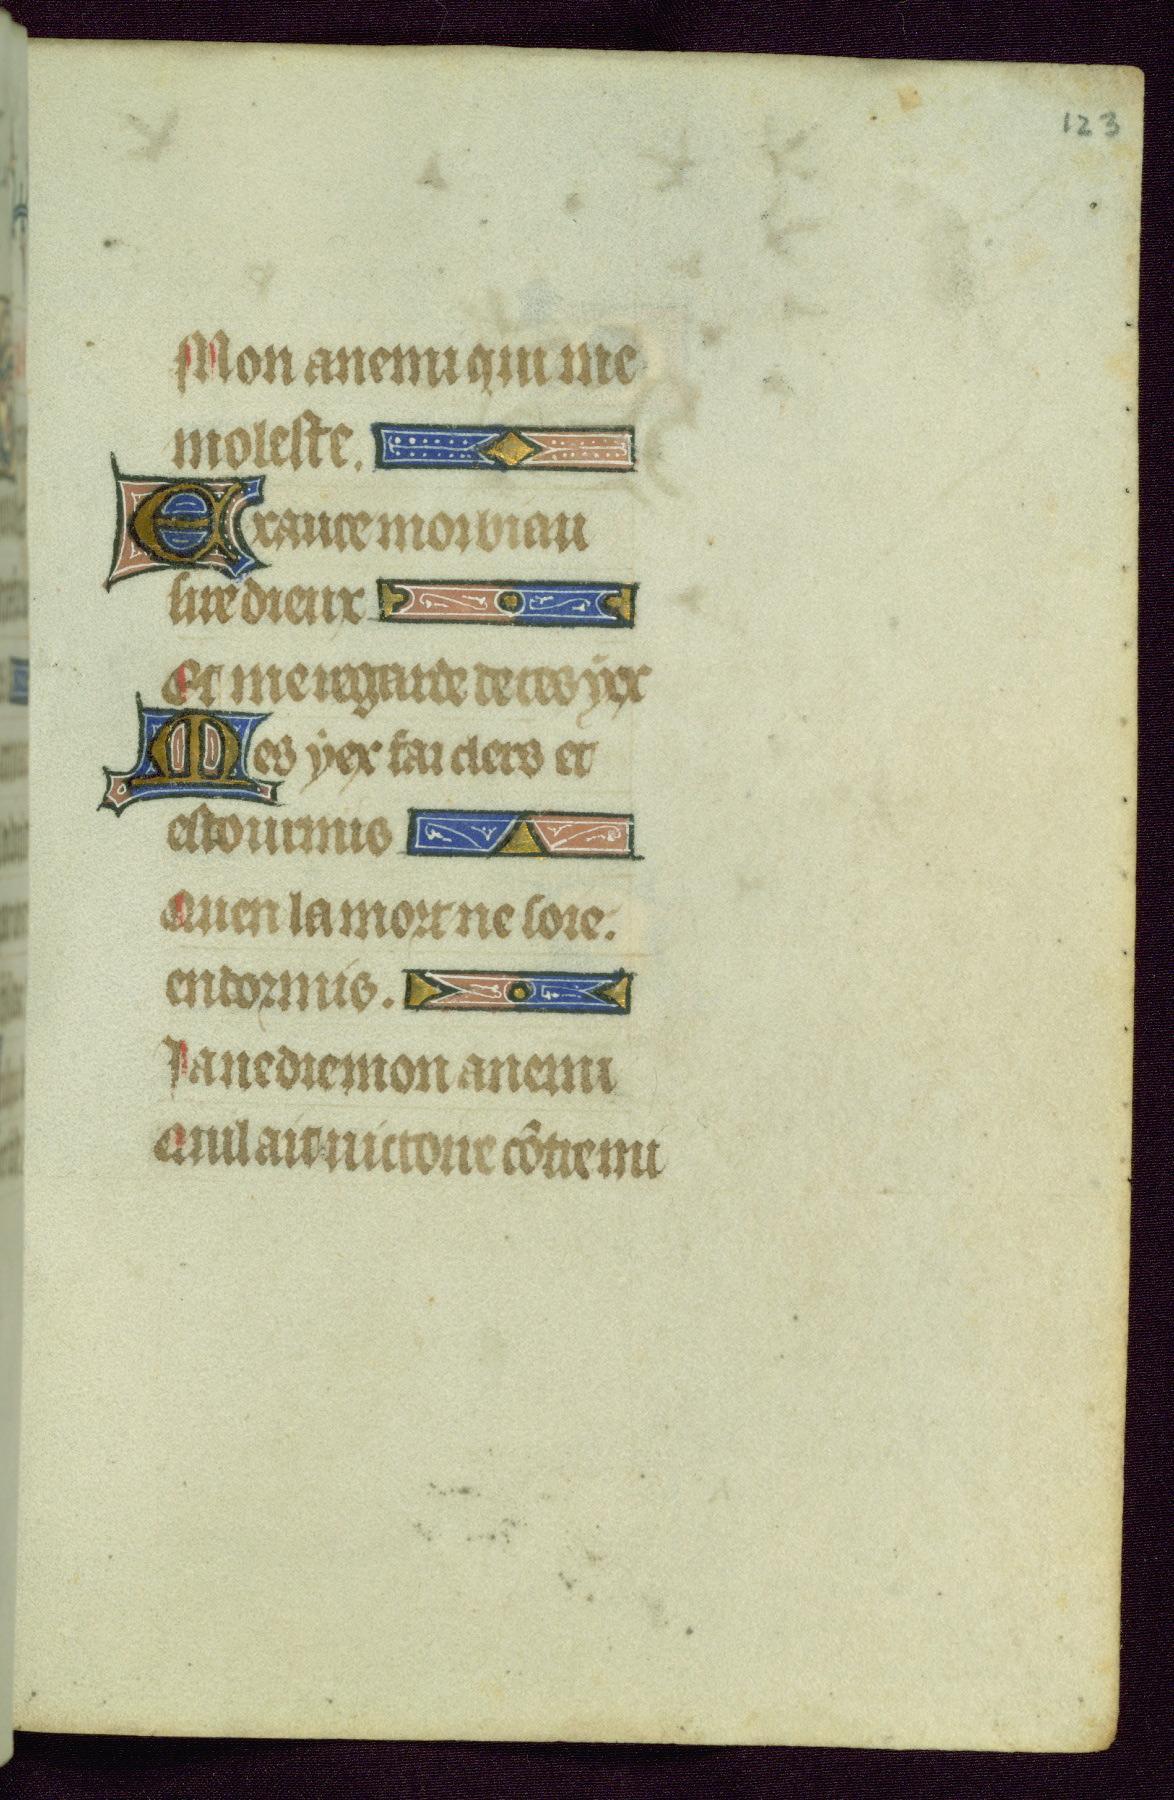 123
Mon anemi qui me
moleste.
Exauce moi biau
sire dieux
Et me regarde de tes yex
Mes yex fai clers et
estourmis
Quen la mort ne soie.
endormis.
Ja ne die mon anemi
Quil ait uictoire cõtre mi